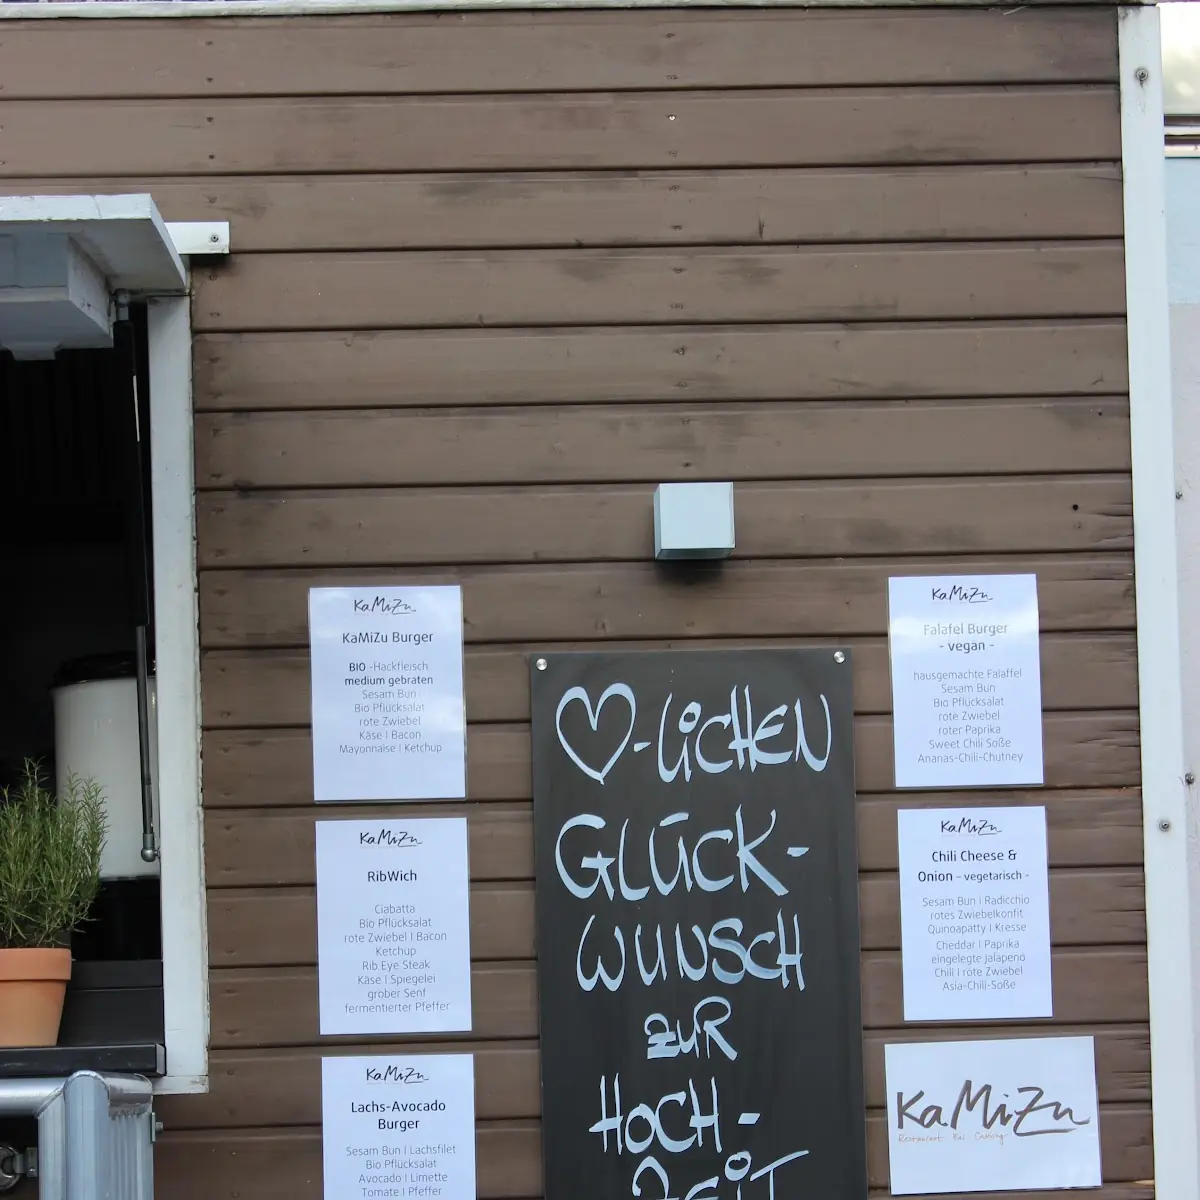 KaMiZu
KaMiZu Burger
BIO -Hackfleisch
medium gebraten
Sesam Bun
Bio Pflücksalat
rote Zwiebel
Käse | Bacon
Mayonnaise | Ketchup
KaMiZu
RibWich
Ciabatta
Bio Pflücksalat
rote Zwiebel | Bacon
Ketchup
Rib Eye Steak
Käse | Spiegelei
grober Senf
fermentierter Pfeffer
KaMiZu
Lachs-Avocado
Burger
Sesam Bun | Lachsfilet
Bio Pflücksalat
Avocado | Limette
Tomate | Pfeffer
♡-LICHEN
GLÜCK-
WUNSCH
ZUR
HOCH-
ZEIT
KaMiZu
Falafel Burger
- vegan -
hausgemachte Falaffel
Sesam Bun
Bio Pflücksalat
rote Zwiebel
roter Paprika
Sweet Chili Soße
Ananas-Chili-Chutney
KaMiZu
Chili Cheese &
Onion - vegetarisch -
Sesam Bun | Radicchio
rotes Zwiebelkonfit
Quinoapatty | Kresse
Cheddar | Paprika
eingelegte Jalapeno
Chili | rote Zwiebel
Asia-Chili-Soße
KaMiZu
Restaurant Bar Catering